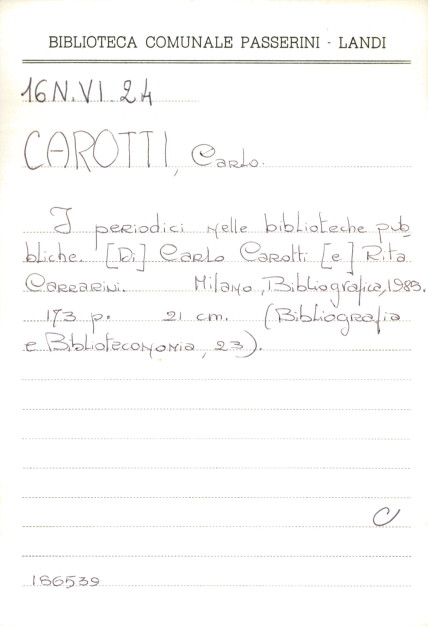 BIBLIOTECA COMUNALE PASSERINI - LANDI
16N.VI.24
CAROTTI, Carlo.
I periodici nelle biblioteche pub
bliche. [Di] Carlo Carotti [e] Rita
Carrarini. Milano, Bibliografica, 1989.
173 p. 21 cm. (Bibliografia
e Biblioteconomia, 23).
C
186539